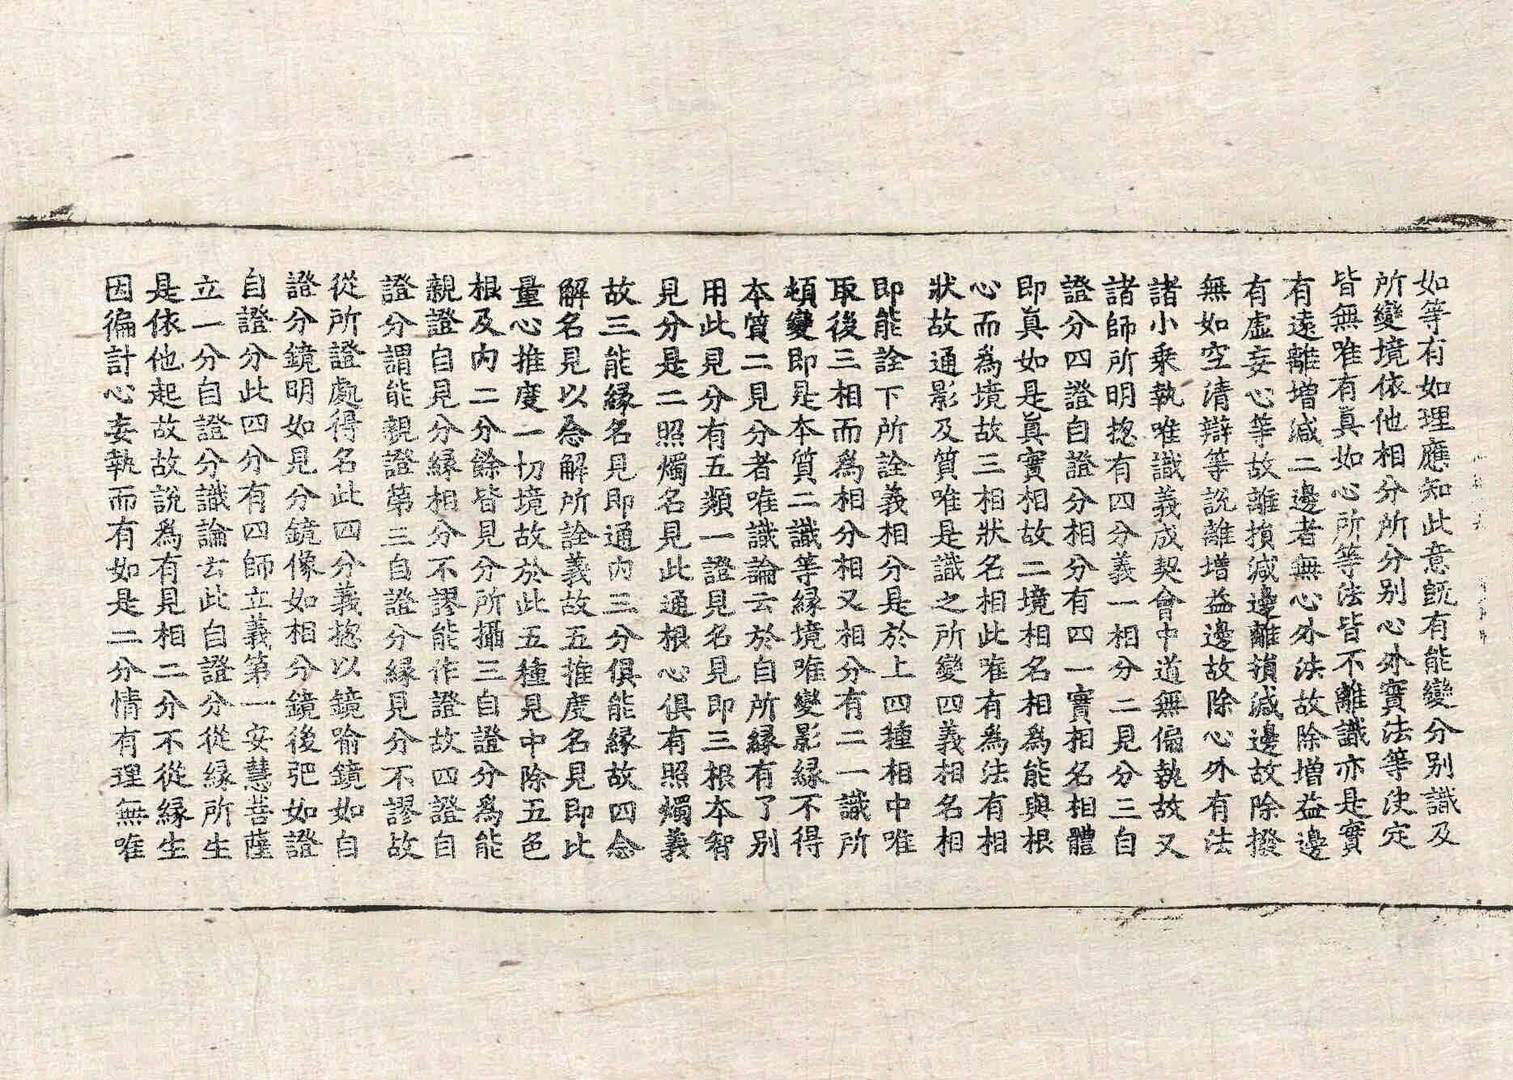 如等有如理應知此意旣有能變分別識及
所變境依他相分所分別心外實法等決定
皆無唯有真如心所等法皆不離識亦是實
有遠離增減二邊者無心外法故除增益邊
有虛妄心等故離損減邊離損減邊故除撥
無如空清辯等說離增益邊故除心外有法
諸小乘執唯識義成契會中道無偏執故又
諸師所明揔有四分義一相分二見分三自
證分四證自證分相分有四一實相名相體
即眞如是眞實相故二境相名相爲能與根
心而爲境故三相狀名相此唯有爲法有相
狀故通影及質唯是識之所變四義相名相
即能詮下所詮義相分是於上四種相中唯
取後三相而爲相分相又相分有二一識所
頓變即是本質二識等縁境唯變影縁不得
本質二見分者唯識論云於自所縁有了別
用此見分有五類一證見名見即三根本智
見分是二照燭名見此通根心俱有照燭義
故三能縁名見即通內三分俱能縁故四念
解名見以念解所詮義故五推度名見即比
量心推度一切境故於此五種見中除五色
根及內二分餘皆見分所攝三自證分爲能
親證自見分縁相分不謬能作證故四證自
證分謂能親證第三自證分縁見分不謬故
從所證處得名此四分義揔以鏡喻鏡如自
證分鏡明如見分鏡像如相分鏡後弝如證
自證分此四分有四師立義第一安慧菩薩
立一分自證分識論云此自證分從緣所生
是依他起故故說爲有見相二分不從緣生
因徧計心妄執而有如是二分情有理無唯